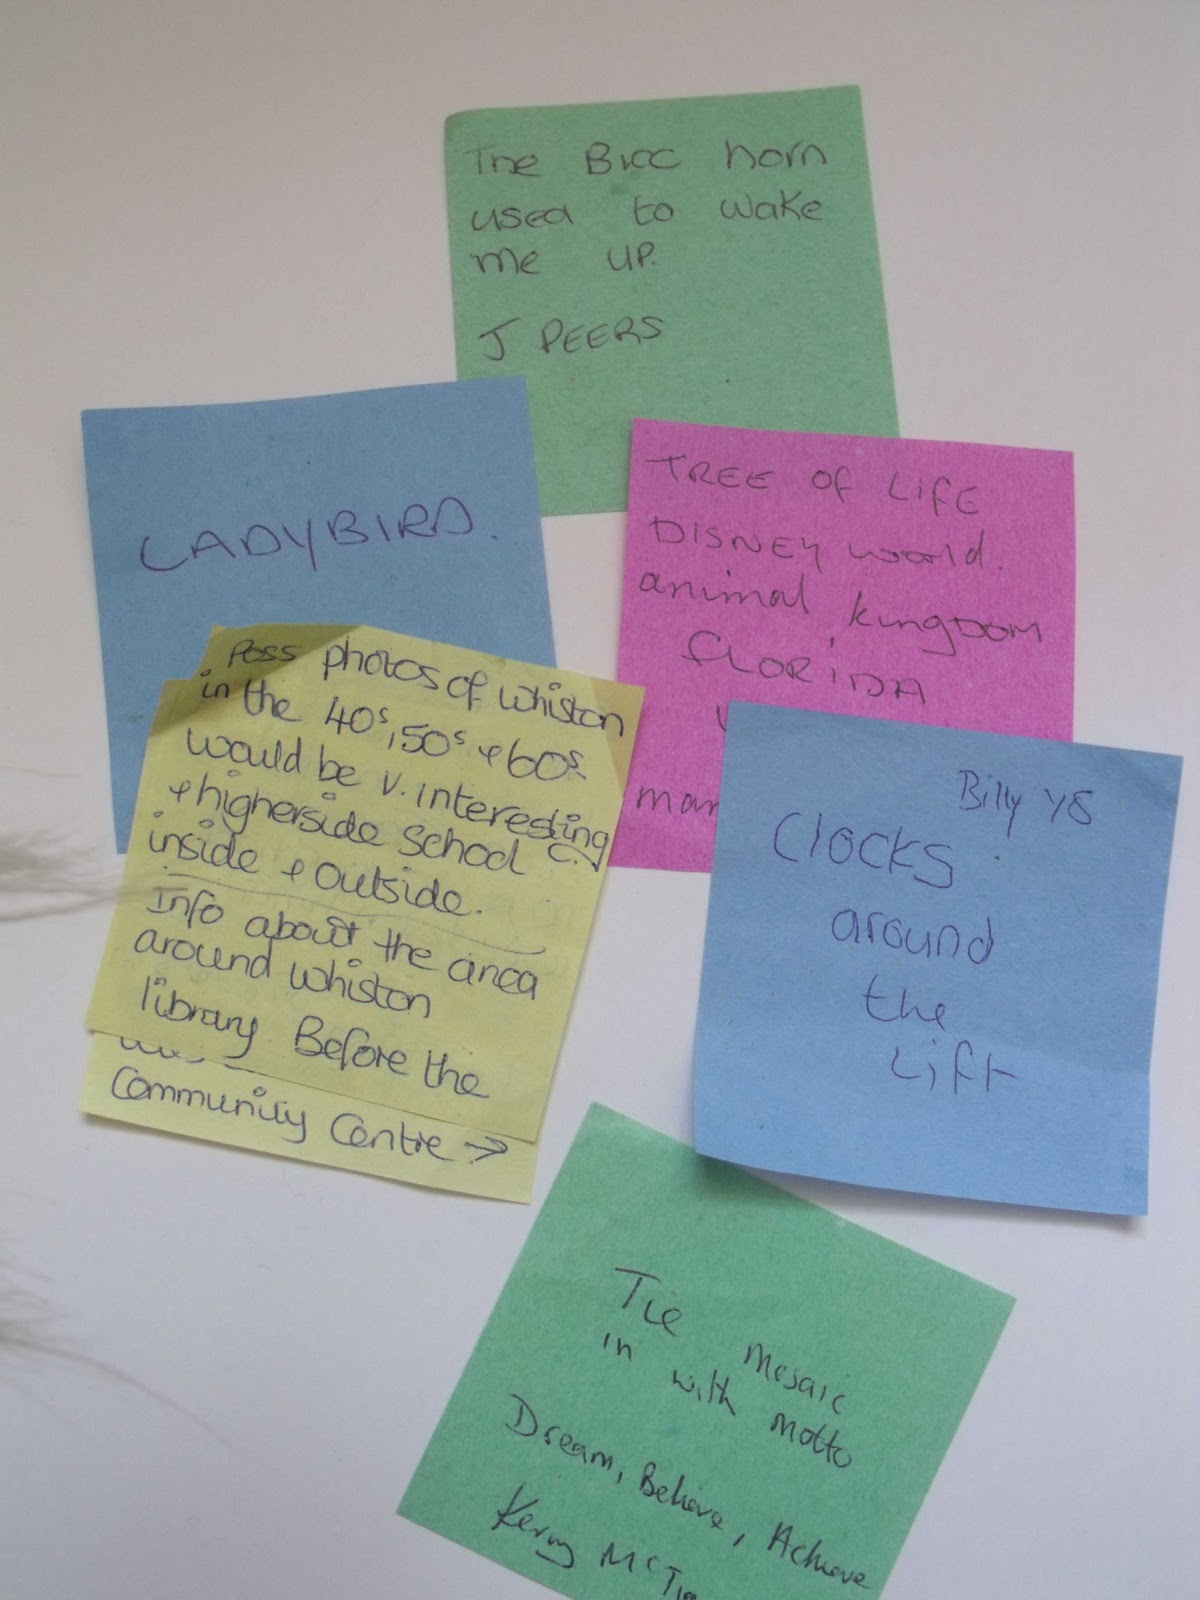 The BICC horn
used to wake
me UP.
J PEERS
LADYBIRD.
TREE OF LIFE
DISNEY world.
animal kingdom
FLORIDA
Poss photos of Whiston
in the 40s, 50s + 60s.
would be v. interesting
+ higherside School C.
inside + outside.
Info about the area
around Whiston
library. Before the
Community Centre →
Billy Y8
Clocks
around
the
Lift
Tie Mosaic
in with motto
Dream, Believe, Achieve